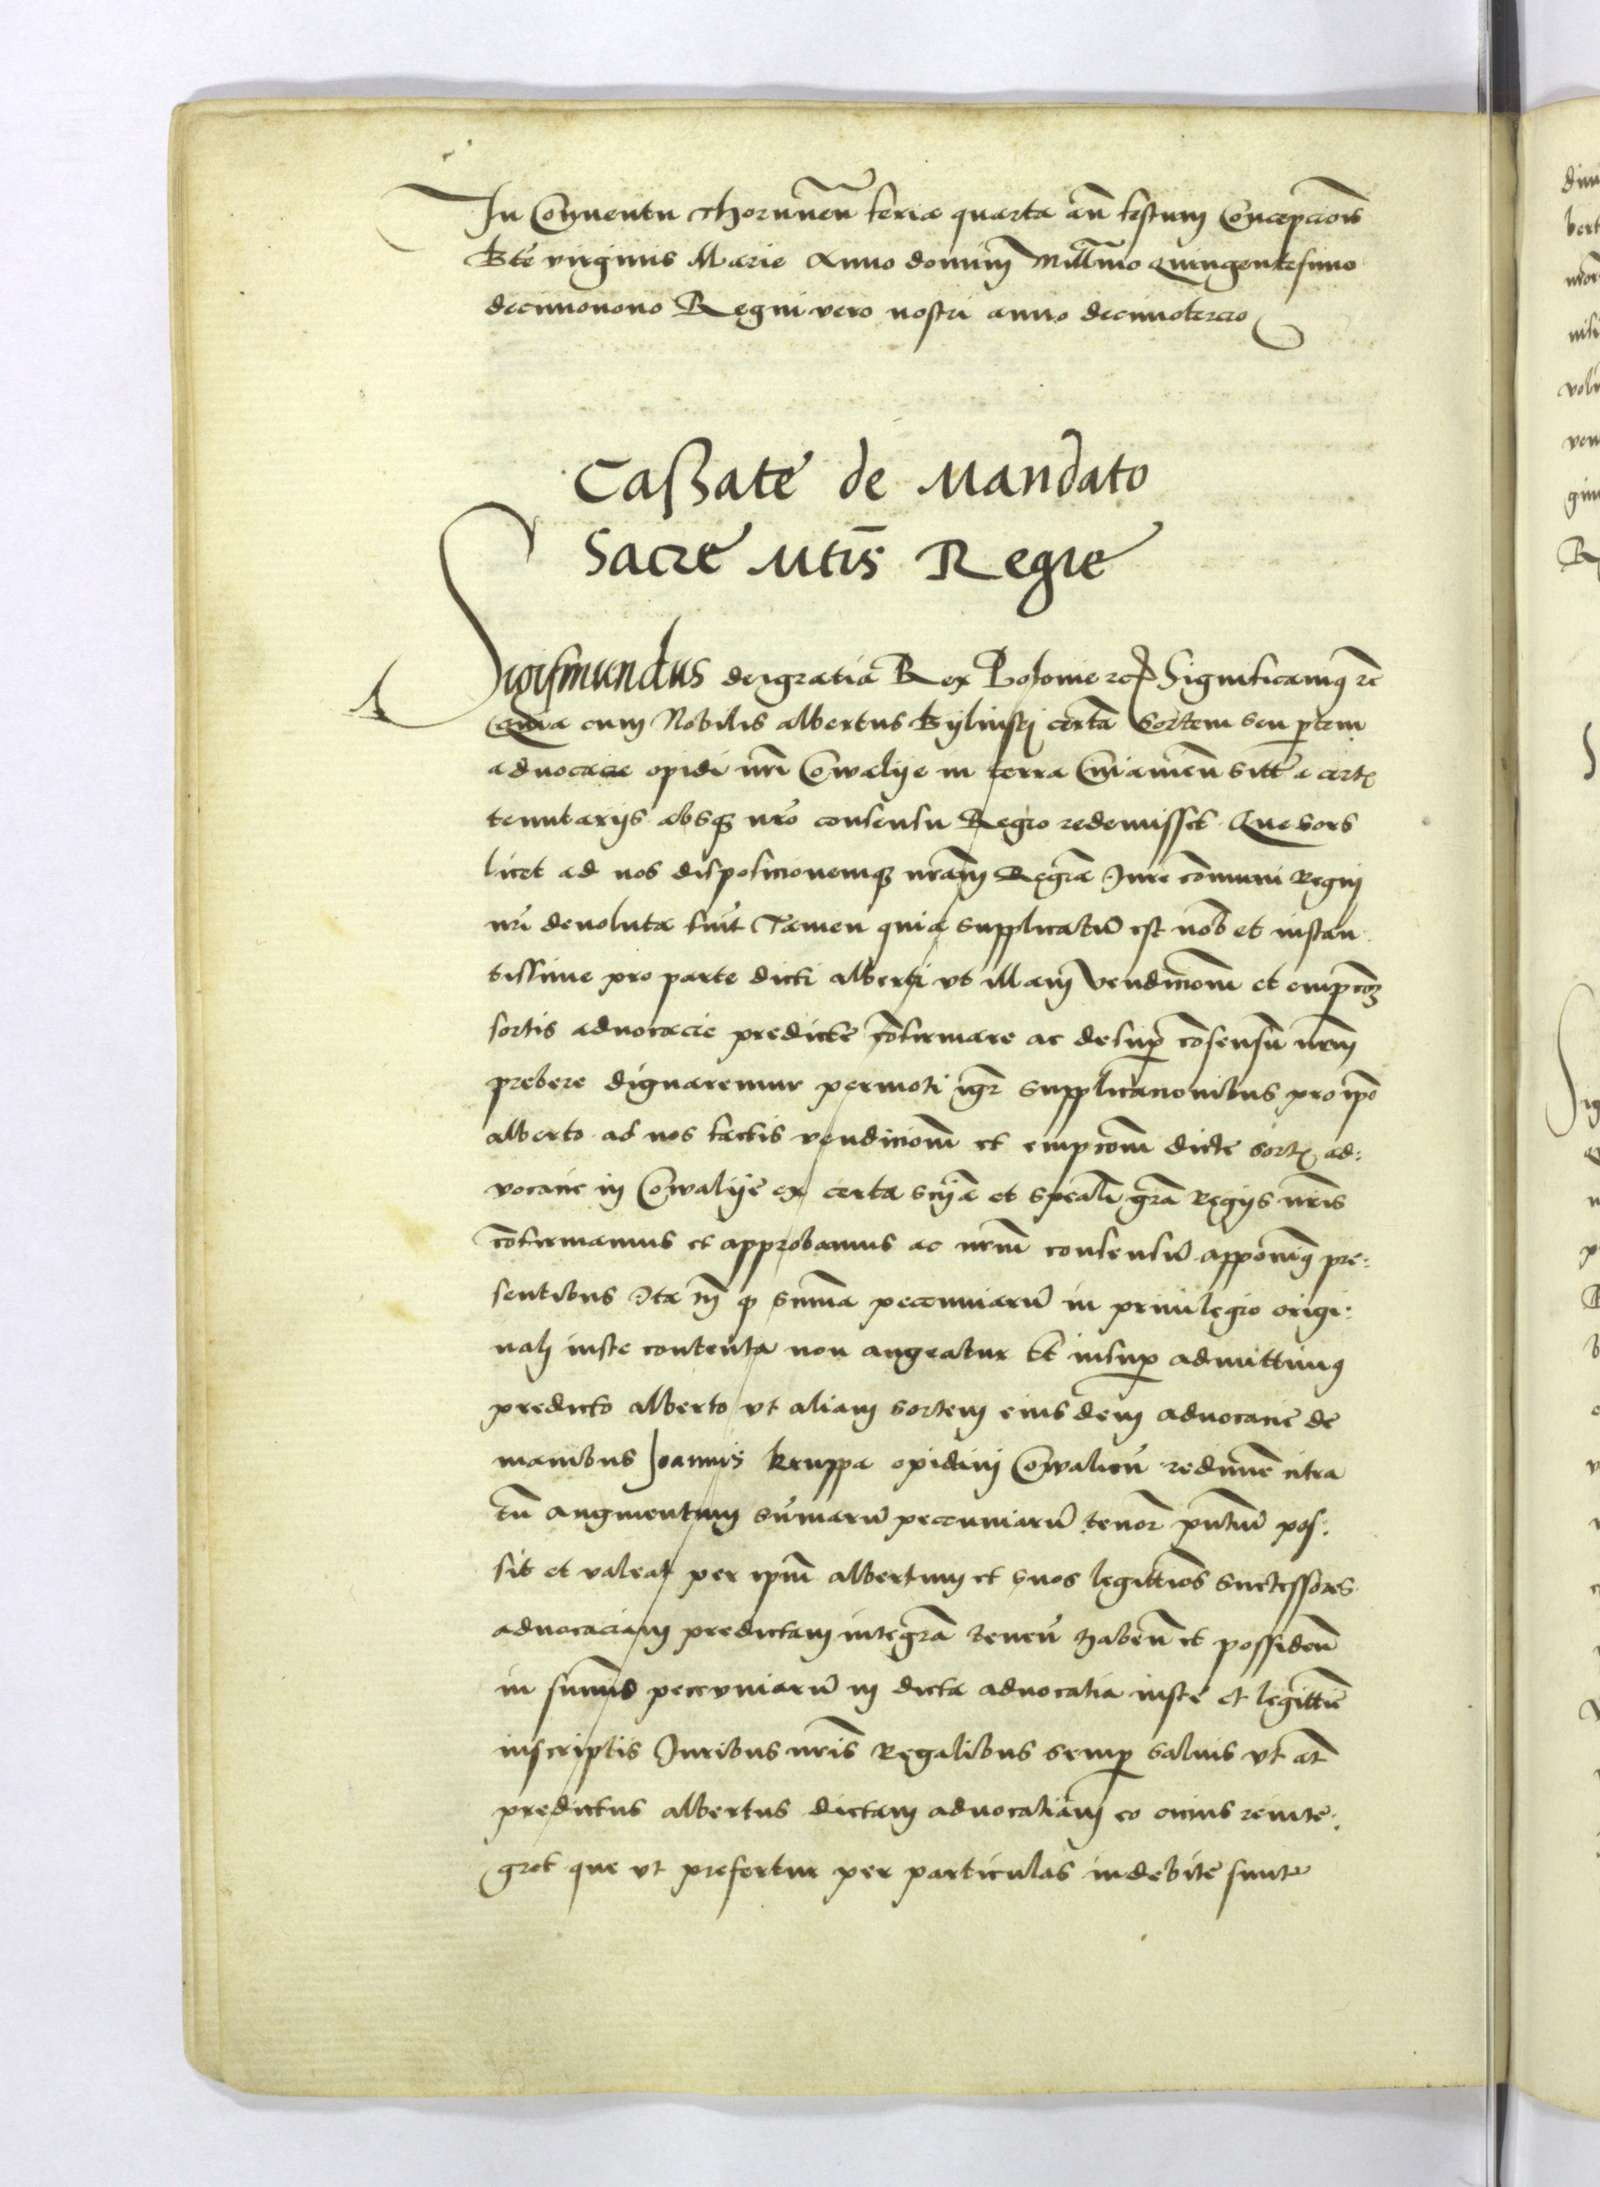 In Conventu thorunen̄ feria quarta an̄ festum Concepcionis
Bte virginis Marie Anno domini Millimo Quingentesimo
decimonono Regni vero nostri anno decimotercio
Cassate de Mandato
Sacre Mtis Regie
Sigismundus dei gratia Rex Polonie etc Significamus etc
Quia cum Nobilis albertus Bylinski certā Sortem seu ptem
advocacie opidi nrī Cowalije in terra Cuiavien̄ sitt̄ a cert
tenutarijs absq nrō consensu Regio redemisset Que sors
licet ad nos disposicionemq nrām Regiā Iure cōmuni Regni
nrī devoluta fuit Tamen quia supplicatū est nob et instan
tissime pro parte dicti alberti ut illam vendicionem et empcōem
sortis advocacie predicte cōfirmare ac desup cōsensū nrm̄
prebere dignaremur permoti igr̄ supplicacionibus pro ipō
alberto ad nos factis vendicionem et empcōem dicte sort ad:
vocacie in Cowalije ex certa sciā et speāli grā Regijs nrīs
cōfirmamus et approbamus ac nrm̄ consensū apponimus pre:
sentibus Ita tn̄ q summa pecuniarū in privilegio origi:
nali iuste contenta non augeatur Et insup admittimus
predicto alberto ut aliam sortem eiusdem advocacie de
manibus Joannis kruppa opidani Cowalien̄ redimē citra
tn̄ augmentum sūmarū pecuniarū tenore pn̄tiū pos:
sit et valeat per ipm̄ albertum et suos legittimos successores
advocaciam predictam integrā tenen̄ haben̄ et possiden̄
in summis pecuniarū in dicta advocatia iuste et legittime
inscriptis Iuribus nrīs Regalibus semp salvis ut at̄
predictus albertus dictam advocatiam eo ocius reinte:
gret que ut prefertur per particulas indebite sunt